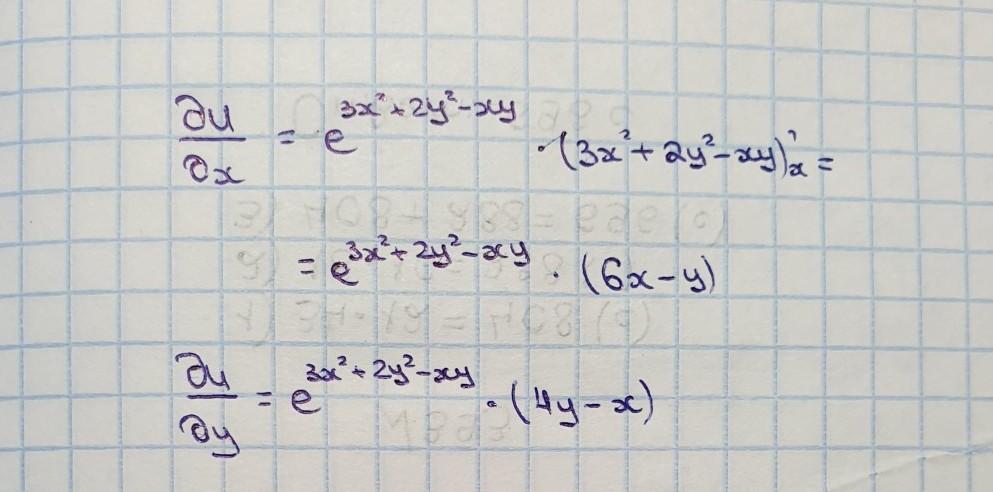 ∂u/∂x = e^(3x²+2y²-xy) · (3x²+2y²-xy)'ₓ =
= e^(3x²+2y²-xy) · (6x-y)
∂u/∂y = e^(3x²+2y²-xy) · (4y-x)